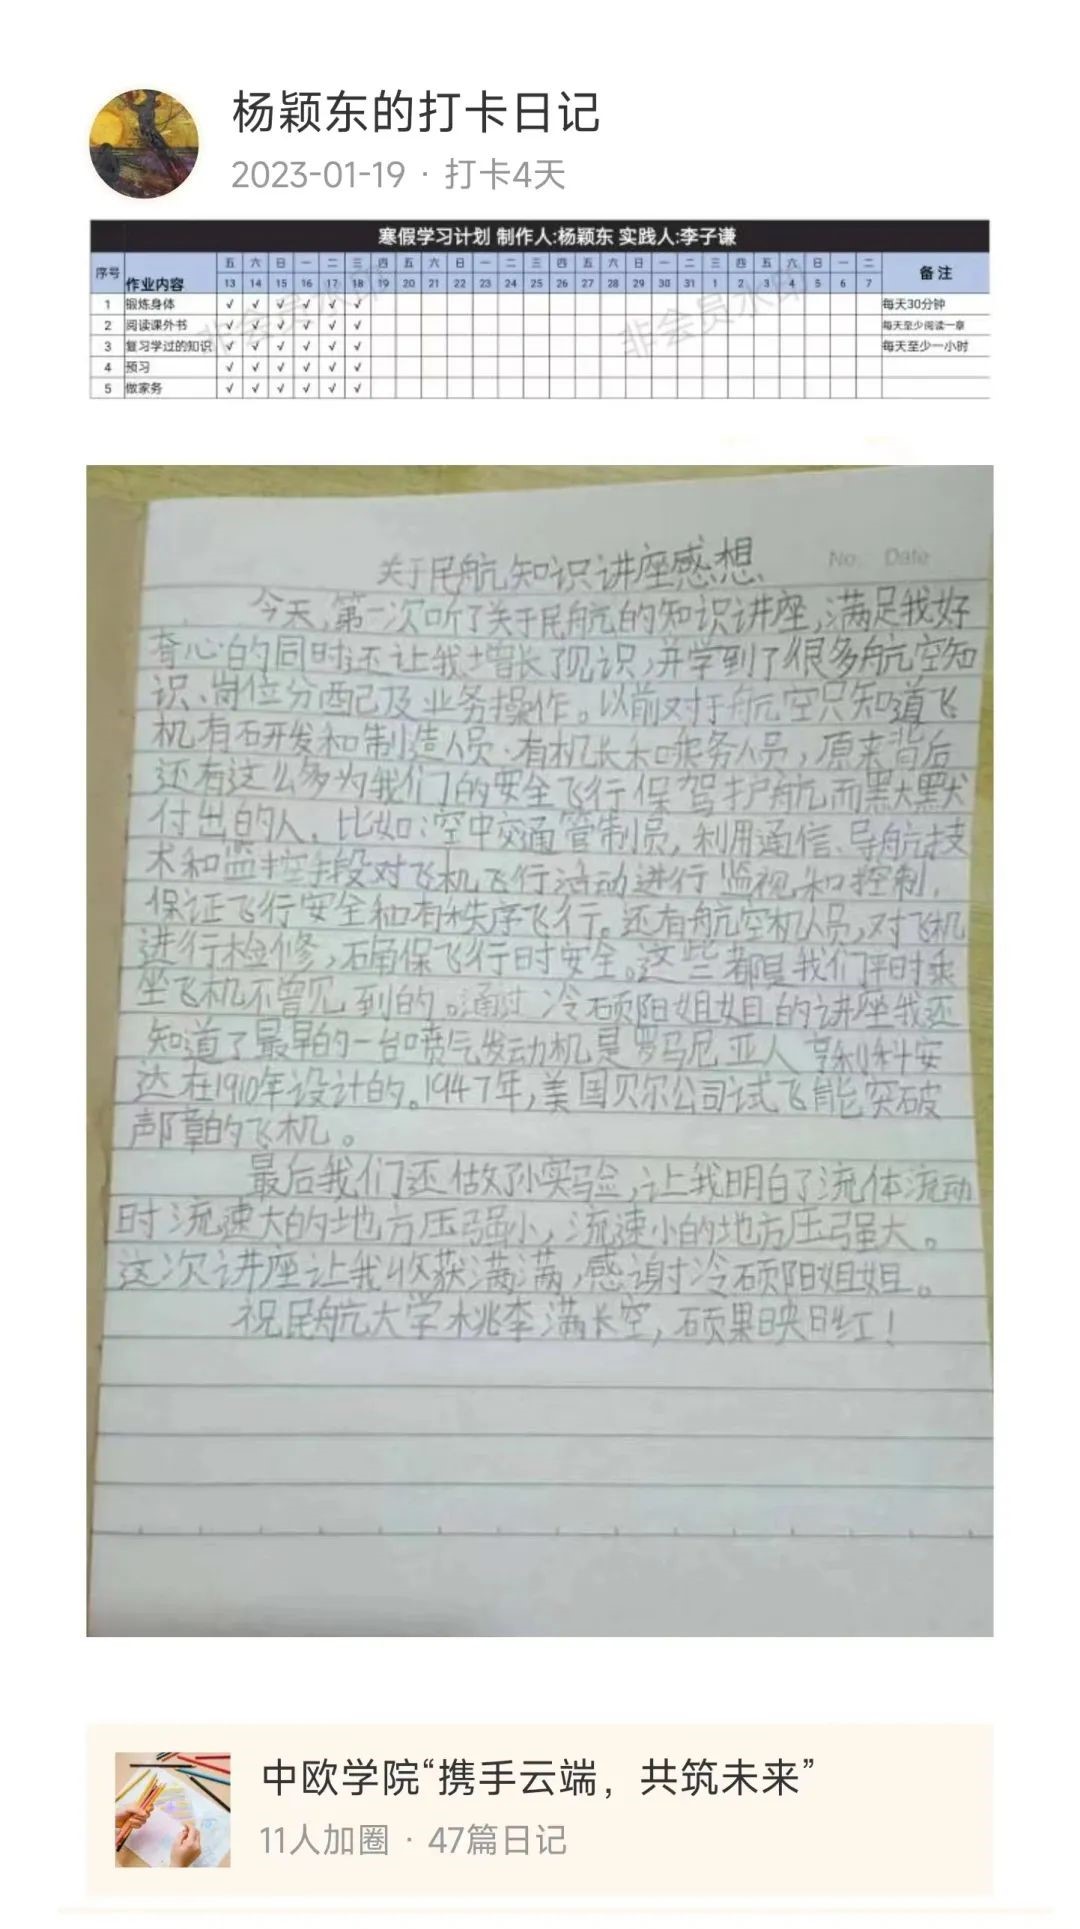 杨颖东的打卡日记
2023-01-19 · 打卡4天
寒假学习计划 制作人:杨颖东 实践人:李子谦
序号 作业内容 五 六 日 一 二 三 四 五 六 日 一 二 三 四 五 六 日 一 二 三 四 五 六 日 一 二 备注
13 14 15 16 17 18 19 20 21 22 23 24 25 26 27 28 29 30 31 1 2 3 4 5 6 7
1 锻炼身体 √ √ √ √ √ √ 每天30分钟
2 阅读课外书 √ √ √ √ √ √ 每天至少阅读一章
3 复习学过的知识 √ √ √ √ √ √ 每天至少一小时
4 预习 √ √ √ √ √ √
5 做家务 √ √ √ √ √ √
非会员水印 非会员水印
No. Date
关于民航知识讲座感想
今天,第一次听了关于民航的知识讲座,满足我好
奇心的同时还让我增长了见识,并学到了很多航空知
识、岗位分配及业务操作。以前对于航空只知道飞
机有研发和制造人员.有机长和乘务人员,原来背后
还有这么多为我们的安全飞行保驾护航而默默
付出的人,比如:空中交通管制员,利用通信、导航技
术和监控手段对飞机飞行活动进行监视和控制,
保证飞行安全和有秩序飞行。还有航空机人员,对飞机
进行检修,确保飞行时安全。这些都是我们平时乘
坐飞机不曾见到的。通过冷硕阳姐姐的讲座我还
知道了最早的一台喷气发动机是罗马尼亚人亨利科安
达在1910年设计的。1947年,美国贝尔公司试飞能突破
声障的飞机。
最后我们还做了小实验,让我明白了流体流动
时流速大的地方压强小,流速小的地方压强大。
这次讲座让我收获满满,感谢冷硕阳姐姐。
祝民航大学桃李满长空,硕果映日红!
中欧学院“携手云端，共筑未来”
11人加圈 · 47篇日记